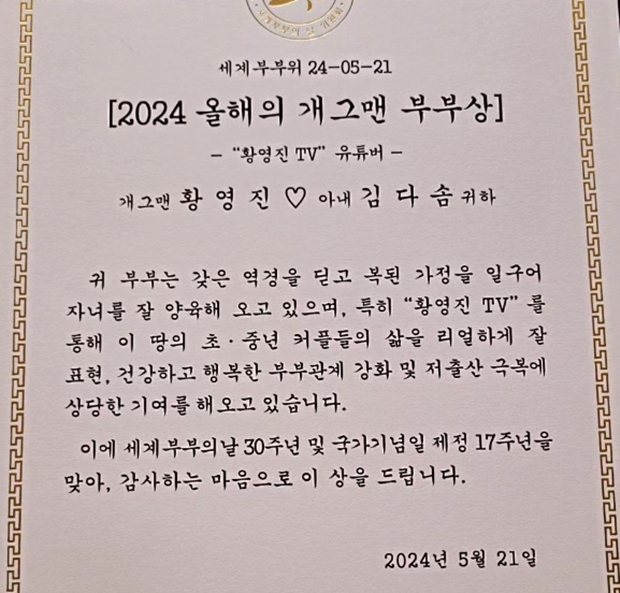 세계부부의날 위원회
세계부부위 24-05-21
[2024 올해의 개그맨 부부상]
- “황영진 TV” 유튜버 -
개그맨 황영진 ♡ 아내 김다솜 귀하
귀 부부는 갖은 역경을 딛고 복된 가정을 일구어
자녀를 잘 양육해 오고 있으며, 특히 “황영진 TV” 를
통해 이 땅의 초·중년 커플들의 삶을 리얼하게 잘
표현, 건강하고 행복한 부부관계 강화 및 저출산 극복에
상당한 기여를 해오고 있습니다.
이에 세계부부의날 30주년 및 국가기념일 제정 17주년을
맞아, 감사하는 마음으로 이 상을 드립니다.
2024년 5월 21일